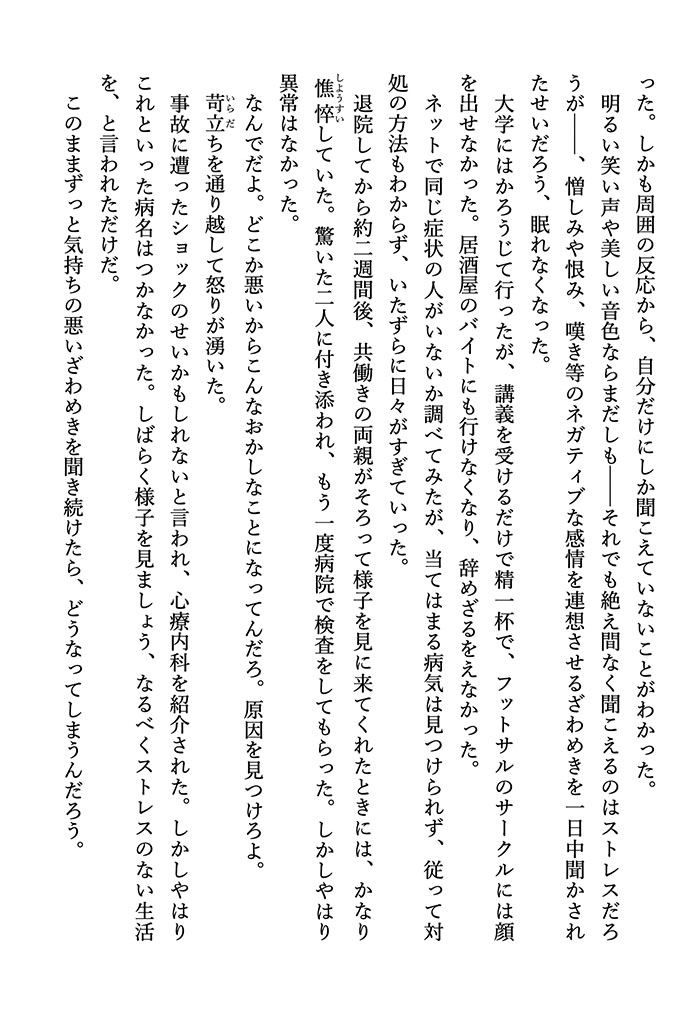 った。しかも周囲の反応から、自分だけにしか聞こえていないことがわかった。
明るい笑い声や美しい音色ならまだしも――それでも絶え間なく聞こえるのはストレスだろ
うが――、憎しみや恨み、嘆き等のネガティブな感情を連想させるざわめきを一日中聞かされ
たせいだろう、眠れなくなった。
大学にはかろうじて行ったが、講義を受けるだけで精一杯で、フットサルのサークルには顔
を出せなかった。居酒屋のバイトにも行けなくなり、辞めざるをえなかった。
ネットで同じ症状の人がいないか調べてみたが、当てはまる病気は見つけられず、従って対
処の方法もわからず、いたずらに日々がすぎていった。
退院してから約二週間後、共働きの両親がそろって様子を見に来てくれたときには、かなり
憔悴していた。驚いた二人に付き添われ、もう一度病院で検査をしてもらった。しかしやはり
しようすい
異常はなかった。
なんでだよ。どこか悪いからこんなおかしなことになってんだろ。原因を見つけろよ。
苛立ちを通り越して怒りが湧いた。
いらだ
事故に遭ったショックのせいかもしれないと言われ、心療内科を紹介された。しかしやはり
これといった病名はつかなかった。しばらく様子を見ましょう、なるべくストレスのない生活
を、と言われただけだ。
このままずっと気持ちの悪いざわめきを聞き続けたら、どうなってしまうんだろう。